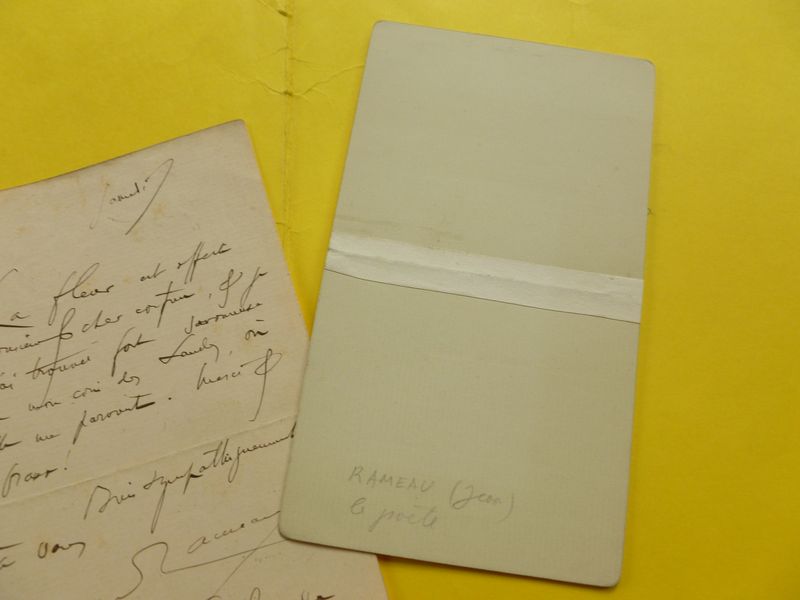 samedi
La fleur est offerte
cher confrère, & je
ai trouvée fort savoureuse
mon coin des Landes, où
elle me parvint. Merci &
bravo!
Bien sympathiquement
à vous
Rameau
RAMEAU (Jean)
le poète